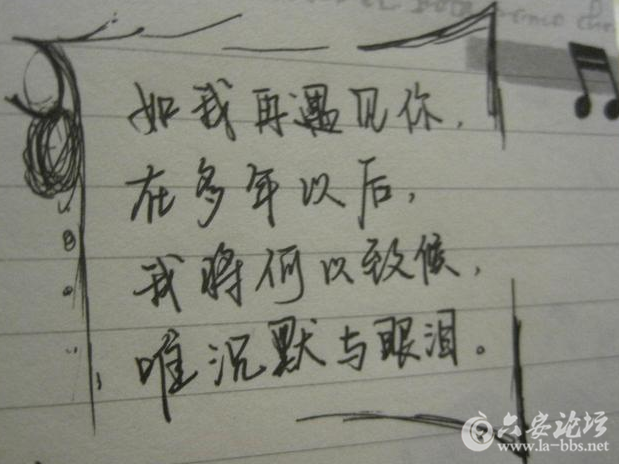 如我再遇见你，
在多年以后，
我将何以致候，
唯沉默与眼泪。
六安论坛
www.la-bbs.net